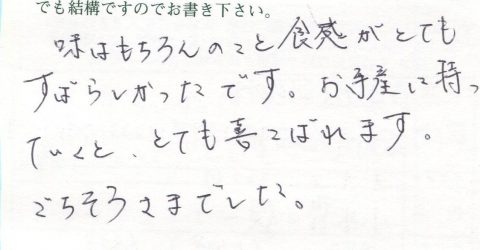 でも結構ですのでお書き下さい。
味はもちろんのこと食感がとても
すばらしかったです。お手産に持っ
ていくと、とても喜こばれます。
ごちそうさまでした。